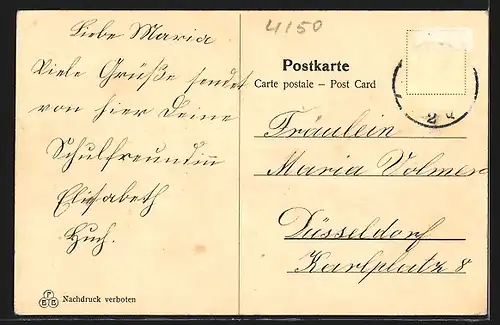 Liebe Maria
Viele Grüße sendet
von hier Deine
Schulfreundin
Elisabeth
Huch.
Nachdruck verboten
4150
Postkarte
Carte postale – Post Card
Fräulein
Maria Volmer
Düsseldorf
Karlplatz 8